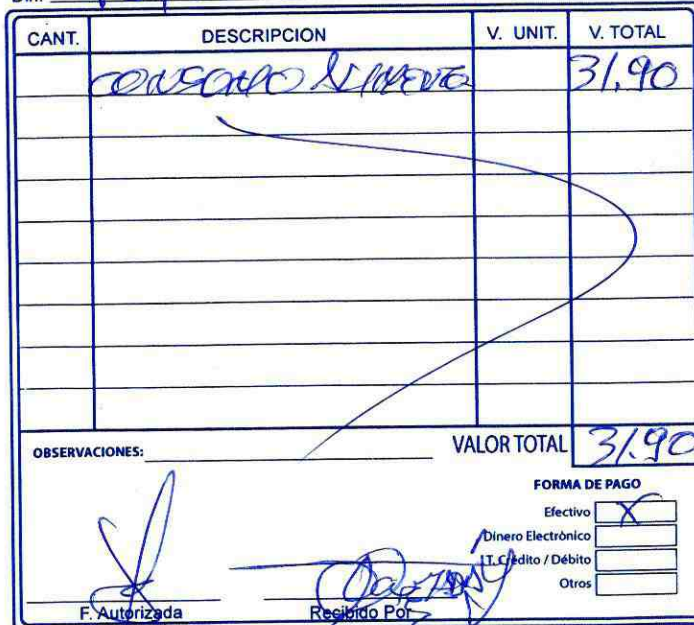 CANT. DESCRIPCION V. UNIT. V. TOTAL
31.90
OBSERVACIONES: VALOR TOTAL 31.90
FORMA DE PAGO
Efectivo X
Dinero Electrònico
T. Crédito / Débito
Otros
F. Autorizada Recibido Por